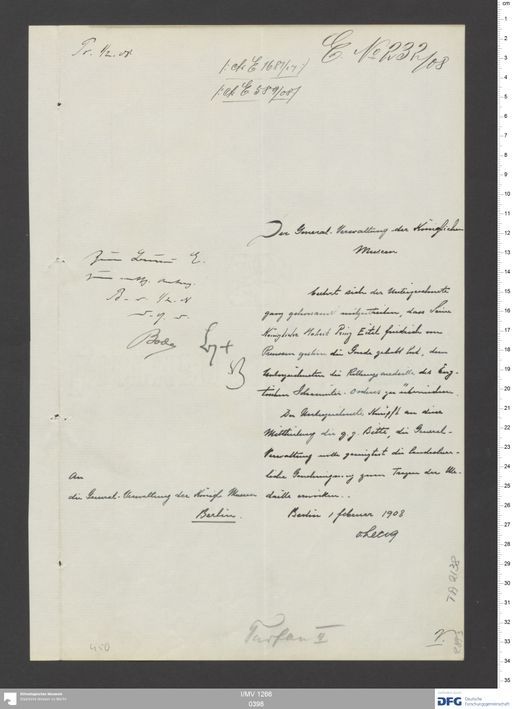 Pr. 1/2. 08
E. No 232/08
f. ch E 1681/07
f. ch E 589/08
Der General-Verwaltung der Königlichen
Museen
beehrt sich der Unterzeichnete
ganz gehorsamst mitzutheilen, dass Seine
Königliche Hoheit Prinz Eitel Friedrich von
Preussen gestern die Gnade gehabt hat, dem
Unterzeichneten die Rettungsmedaille des
Johanniter-Ordens zu überreichen.
Der Unterzeichnete knüpft an diese
Mittheilung die g. g. Bitte, die General-
Verwaltung wolle geneigtest die landesherr-
liche Genehmigung zum Tragen der Me-
daille erwirken.
Berlin 1 Februar 1908
vLecoq
Zum E.
B. 1/2. 08
Bode
An
die General-Verwaltung der Königl. Museen
Berlin.
Turfan II
TA 2138
450
Ethnologisches Museum
Staatliche Museen zu Berlin
I/MV 1266
0398
DFG Deutsche
Forschungsgemeinschaft